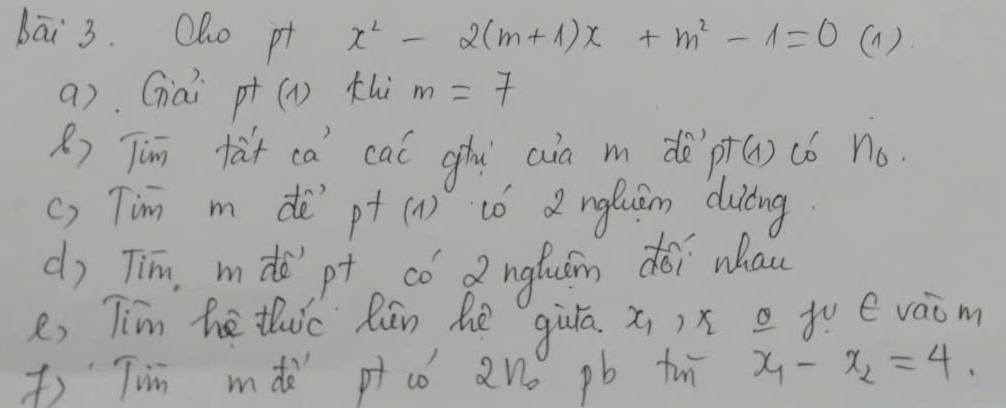 Bài 3. Cho pt x² - 2(m+1)x + m² - 1 = 0 (1).
a). Giải pt (1) khi m = 7
b) Tìm tất cả các gtrị của m để pt(1) có n₀.
c) Tìm m để pt (1) có 2 nghiệm dương.
d) Tìm m để pt có 2 nghiệm đối nhau
e) Tìm hệ thức liên hệ giữa x₁, x₂ o̲ fụ ∈ vào m
f) Tìm m để pt có 2n₀ pb tm x₁ - x₂ = 4.